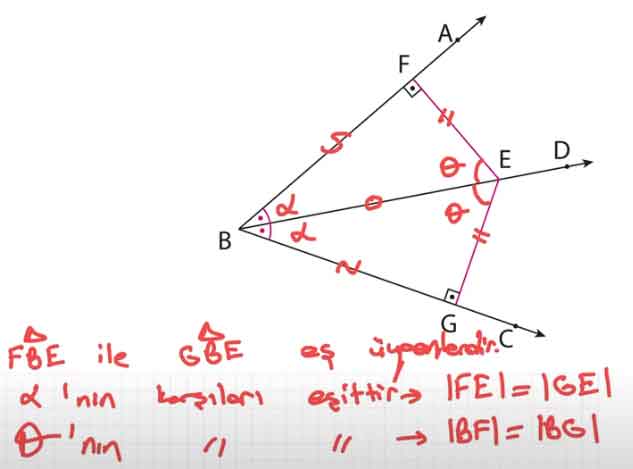 A
F
E
D
θ
θ
α
α
B
G
C
FBE ile GBE eş üçgenlerdir.
α'nın karşıları eşittir → |FE| = |GE|
θ'nın " " → |BF| = |BG|